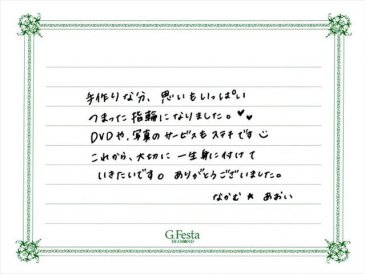 手作りな分、思いもいっぱい
つまった指輪になりました。♥♥
DVDや、写真のサービスもステキです☺
これから、大切に一生身に付けて
いきたいです。ありがとうございました。
なかむ★あおい
G.Festa
DIAMOND